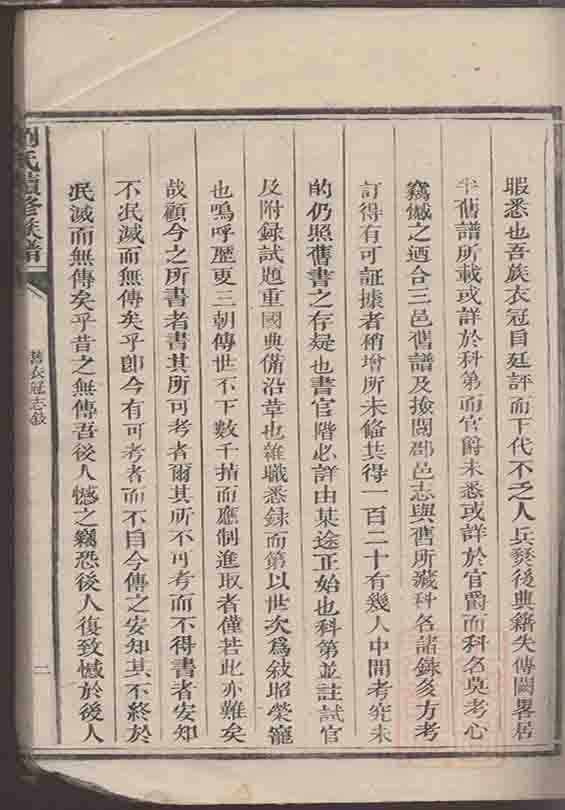 暇悉也吾族衣冠自廷評而下代不乏人兵燹後典籍失傳闕畧居
半舊譜所載或詳於科第而官爵未悉或詳於官爵而科名莫考心
竊憾之迺合三邑舊譜及撿閱郡邑志與舊所藏科名諸錄多方考
訂得有可証據者稍增所未備共得一百二十有幾人中間考究未
的仍照舊書之存疑也書官階必詳由某途正始也科第並註試官
及附錄試題重國典備沿革也雜職悉錄而第以世次為敍昭榮寵
也嗚呼歷更三朝傳世不下数千指而應制進取者僅若此亦難矣
哉顧今之所書者書其所可考者爾其所不可考而不得書者安知
不泯滅而無傳矣乎即今有可考者而不自今傳之安知其不終於
泯滅而無傳矣乎昔之無傳吾後人憾之竊恐後人復致憾於後人
劉氏續修族譜
舊衣冠志敍
二